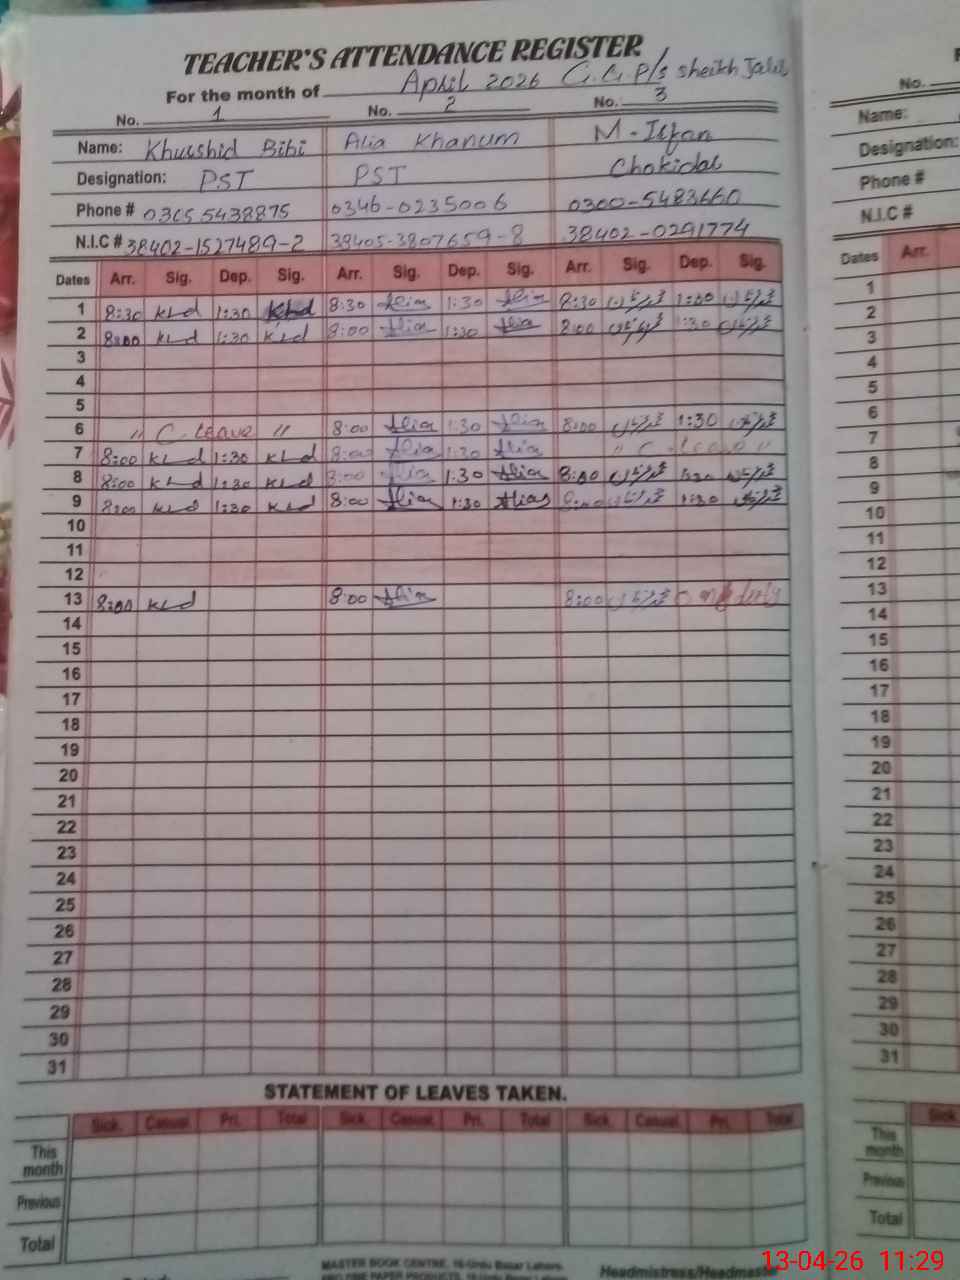 TEACHER'S ATTENDANCE REGISTER
For the month of April 2026 G.G.P/s Sheikh Jalil
No. 1 No. 2 No. 3
Name: Khurshid Bibi Alia Khanum M-Irfan
Designation: PST PST Chokidar
Phone # 0305 5438875 0346-0235006 0300-5483660
N.I.C # 38402-1527489-2 38405-3807659-8 38402-0291774
Dates Arr. Sig. Dep. Sig. Arr. Sig. Dep. Sig. Arr. Sig. Dep. Sig.
1 8:30 KLd 1:30 KLd 8:30 Alia 1:30 Alia 8:30 1:00
2 8:00 KLd 1:30 KLd 8:00 Alia 1:30 Alia 8:00 1:30
3
4
5
6 " C. Leave " 8:00 Alia 1:30 Alia 8:00 1:30
7 8:00 KLd 1:30 KLd 8:00 Alia 1:30 Alia " C. Leave "
8 8:00 KLd 1:30 KLd 8:00 Alia 1:30 Alia 8:00 1:30
9 8:00 KLd 1:30 KLd 8:00 Alia 1:30 Alia 8:00 1:30
10
11
12
13 8:00 KLd 8:00 Alia 8:00
14
15
16
17
18
19
20
21
22
23
24
25
26
27
28
29
30
31
STATEMENT OF LEAVES TAKEN.
Sick. Casual. Pri. Total Sick. Casual. Pri. Total Sick. Casual. Pri. Total
This month
Previous
Total
MASTER BOOK CENTRE, 16-Urdu Bazar Lahore.
Headmistress/Headmaster
No.
Name:
Designation:
Phone #
N.I.C #
Dates Arr.
1
2
3
4
5
6
7
8
9
10
11
12
13
14
15
16
17
18
19
20
21
22
23
24
25
26
27
28
29
30
31
Sick.
This month
Previous
Total
13-04-26 11:29